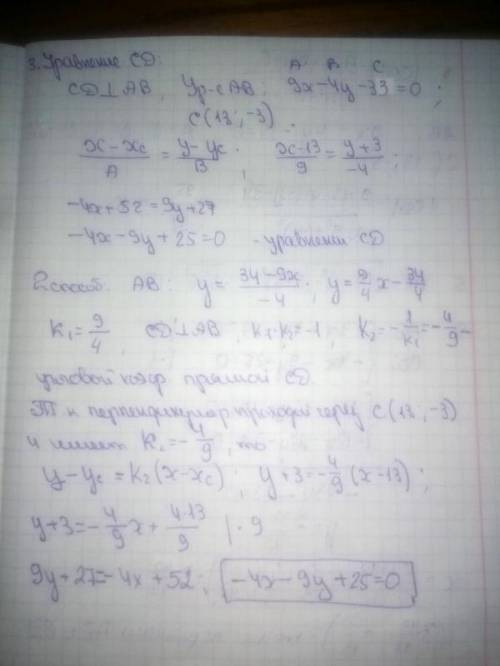 3. Уравнение CD:
A B C
CD⊥AB, Ур-е AB: 9x-4y-33=0;
C(13;-3).
(x-xc)/A = (y-yc)/B; (x-13)/9 = (y+3)/-4;
-4x+52=9y+27
-4x-9y+25=0 - уравнение CD
2 способ. AB: y = (34-9x)/-4; y = 9/4 x - 34/4
K₁ = 9/4 CD⊥AB, K₁·K₂=-1, K₂ = -1/K₁ = -4/9 -
угловой коэф. прямой CD.
Т к перпендикуляр проходит через C(13;-3)
и имеет K₂=-4/9, то
y-yc = K₂(x-xc); y+3=-4/9(x-13);
y+3=-4/9 x + 4·13/9 |·9
9y+27=-4x+52; -4x-9y+25=0